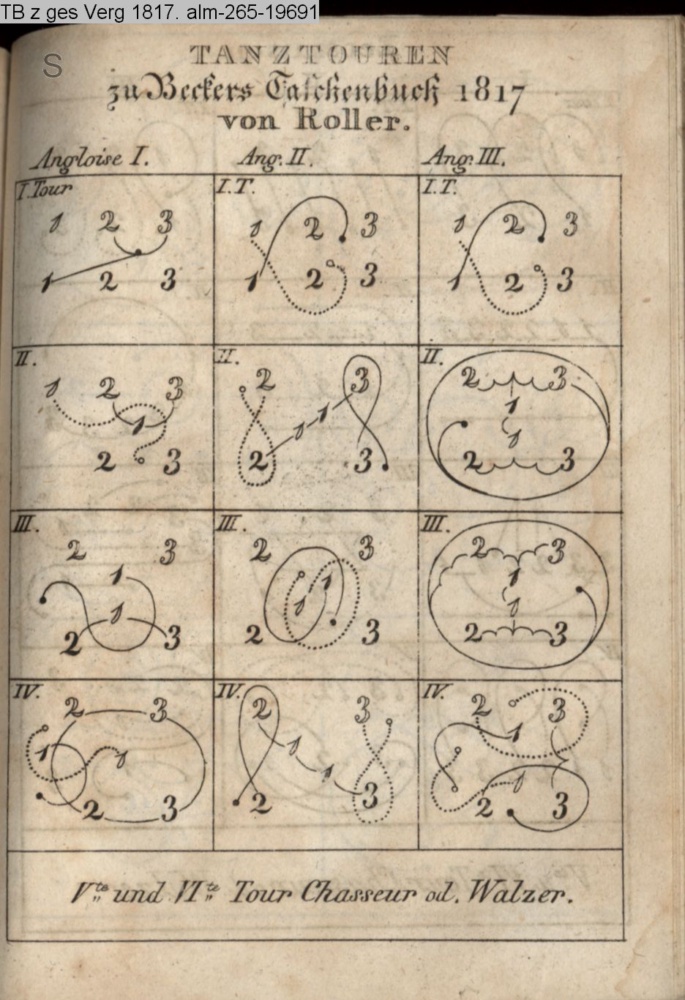 TB z ges Verg 1817. alm-265-19691
S
TANZTOUREN
zu Beckers Taschenbuch 1817
von Roller.
Angloise I. Ang. II. Ang. III.
I. Tour I. T. I. T.
1 2 3 1 2 3 1 2 3
1 2 3 1 2 3 1 2 3
II. II. II.
1 2 3 2 3 2 3
1 1 1 1 1
2 3 2 3 2 3
III. III. III.
2 3 2 3 2 3
1 1 1 1 1 1
2 3 2 3 2 3
IV. IV. IV.
2 3 2 3 2 3
1 1 1 1 1 1
2 3 2 3 2 3
Vte und VIte Tour Chasseur od. Walzer.